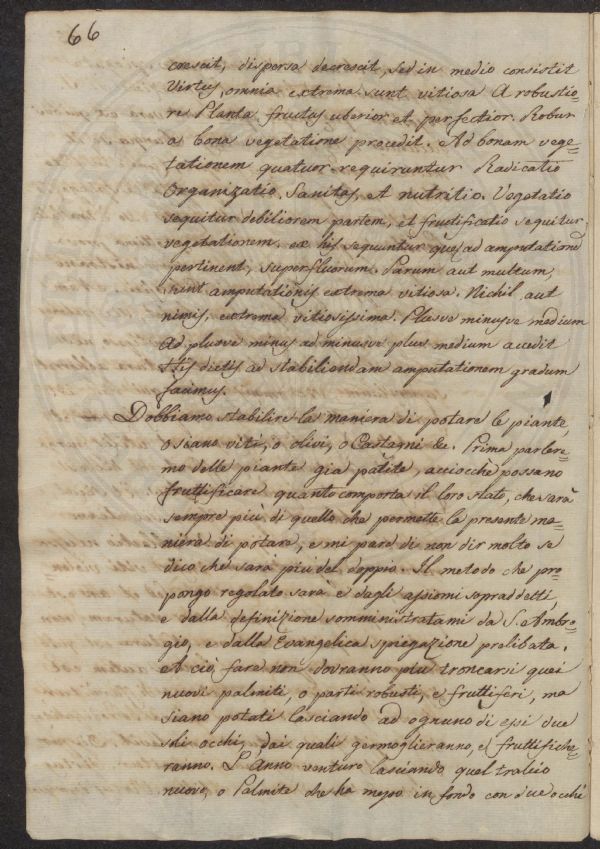 66
crescit, dispersa decrescit, sed in medio consistit
Virtus, omnia extrema sunt vitiosa A robustio=
re Planta fructus uberior et perfectior. Robur
a bona vegetatione procedit. Ad bonam vege=
tationem quatuor requiruntur Radicatio
Organizatio, Sanitas, et nutritio. Vegetatio
sequitur debiliorem partem, et fructificatio sequitur
vegetationem. ex his sequuntur ad amputationẽ
pertinent, superfluorum. Parum aut multum,
sunt amputationis extrema vitiosa. Nichil aut
nimis, extrema vitiosissima. Plusve minusve medium
Ad plusve minus ad minusve plus medium accedit
His dictis ad stabiliendam amputationem gradum
facimus.
Dobbiamo stabilire la maniera di potare le piante,
o siano viti, o olivi, o Castagni &c. Prima parlere=
mo delle piante gia patite, acciocchè possano
fruttificare quanto comporta il loro stato, che sarà
sempre più di quello che permette la presente ma=
niera di potare, e mi pare di non dir molto se
dico che sarà piu del doppio. Il metodo che pro=
pongo regolato sarà e dagli assiomi sopraddetti,
e dalla definizione somministratami da S. Ambro=
gio, e dalla Evangelica spiegazione prelibata.
A ciò fare non dovranno più troncarsi quei
nuovi palmiti, o parti robusti, e fruttiferi, ma
siano potati lasciando ad ognuno di essi due
soli occhi, dai quali germoglieranno, e fruttifiche=
ranno. L'Anno venturo lasciando quel tralcio
nuovo, o Palmite che ha messo in fondo con due occhi